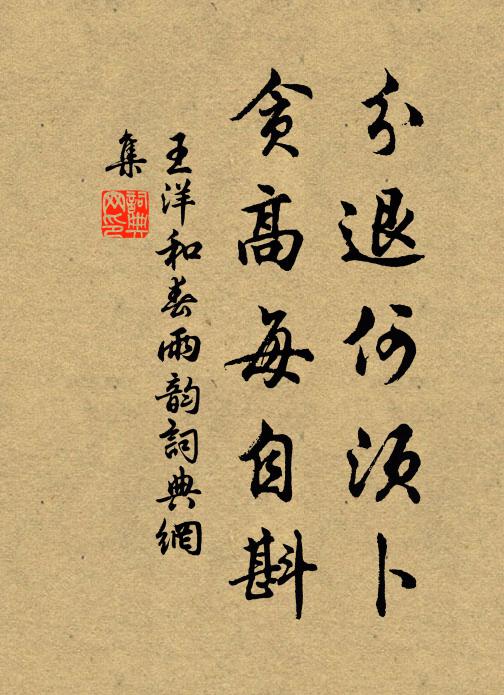 分退何須卜
貪高每自斟
王洋和春雨韵詞典網
集
詞典网印